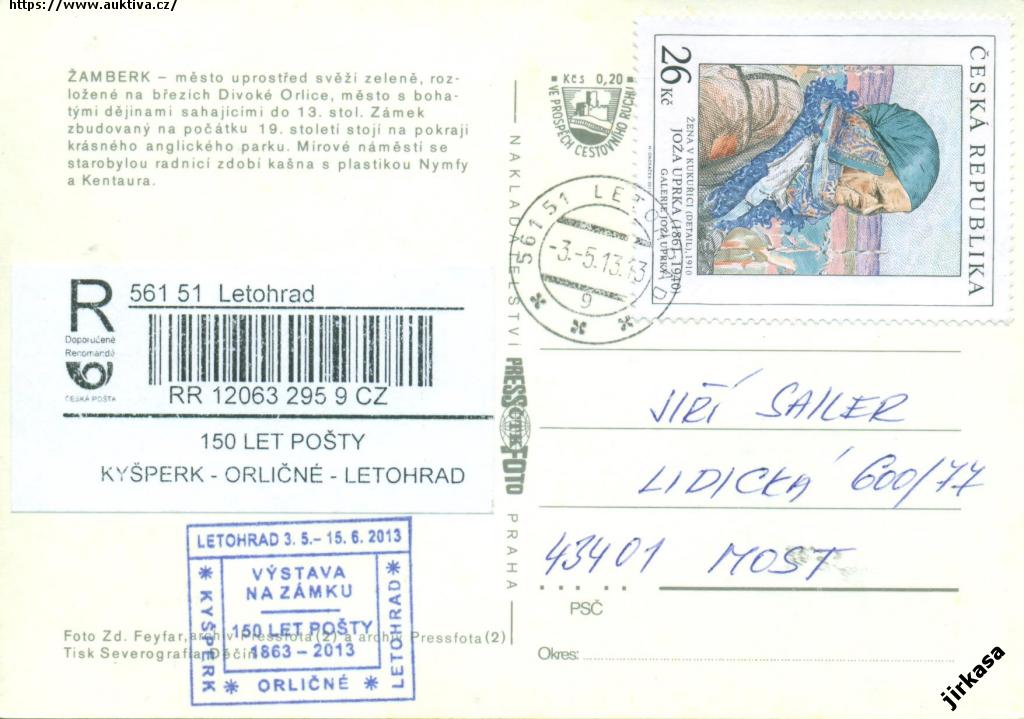 https://www.auktiva.cz/
ŽAMBERK – město uprostřed svěží zeleně, roz-
ložené na březích Divoké Orlice, město s boha-
tými dějinami sahajícími do 13. stol. Zámek
zbudovaný na počátku 19. století stojí na pokraji
krásného anglického parku. Mírové náměstí se
starobylou radnicí zdobí kašna s plastikou Nymfy
a Kentaura.
R
Doporučeně
Renomandé
ČESKÁ POŠTA
561 51 Letohrad
RR 12063 295 9 CZ
150 LET POŠTY
KYŠPERK - ORLIČNÉ - LETOHRAD
LETOHRAD 3. 5.– 15. 6. 2013
VÝSTAVA
NA ZÁMKU
150 LET POŠTY
1863 – 2013
KYŠPERK
ORLIČNÉ
LETOHRAD
Foto Zd. Feyfar, archiv Pressfota (2) a archiv Pressfota (2)
Tisk Severografia Děčín
NAKLADATELSTVÍ PRESSFOTO PRAHA
ČTK
Kčs 0,20
VE PROSPĚCH CESTOVNÍHO RUCHU
561 51 LETOHRAD
-3.-5.13.-13
g 2
ČESKÁ REPUBLIKA
26 Kč
ŽENA V KUKUŘICI (DETAIL), 1910
JOŽA UPRKA (1861-1940)
GALERIE JOŽI UPRKY
JIŘÍ SAILER
LIDICKÁ 600/77
43401 MOST
PSČ
Okres:
jirkasa